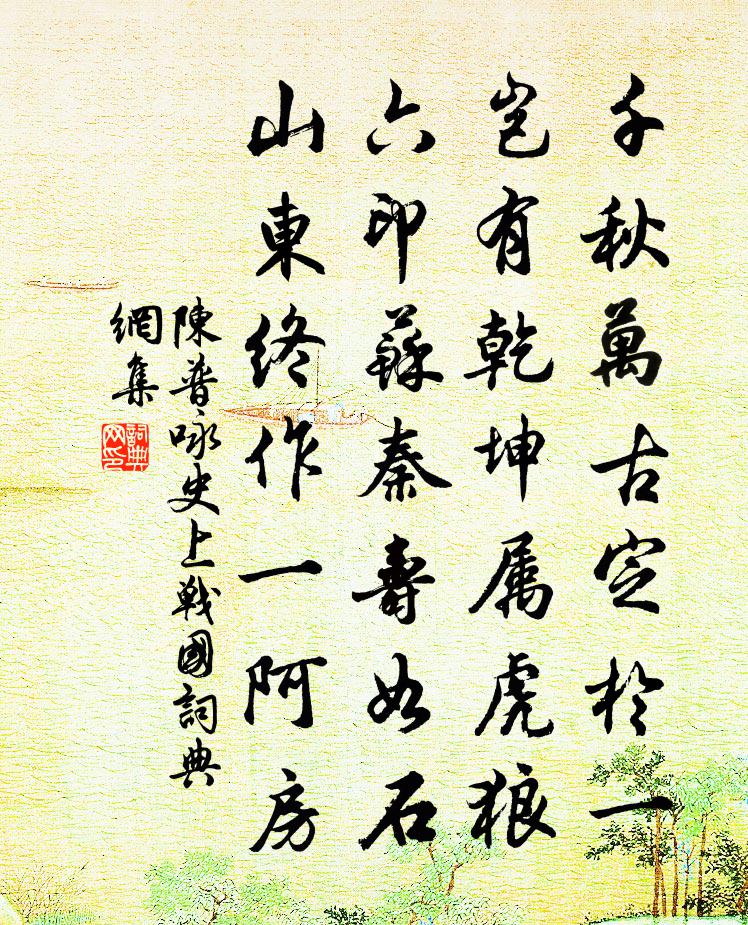 千秋萬古定於一
豈有乾坤属虎狼
六印蘇秦壽如石
山東終作一阿房
陳普咏史上戰國詞典
網集
詞典
网印